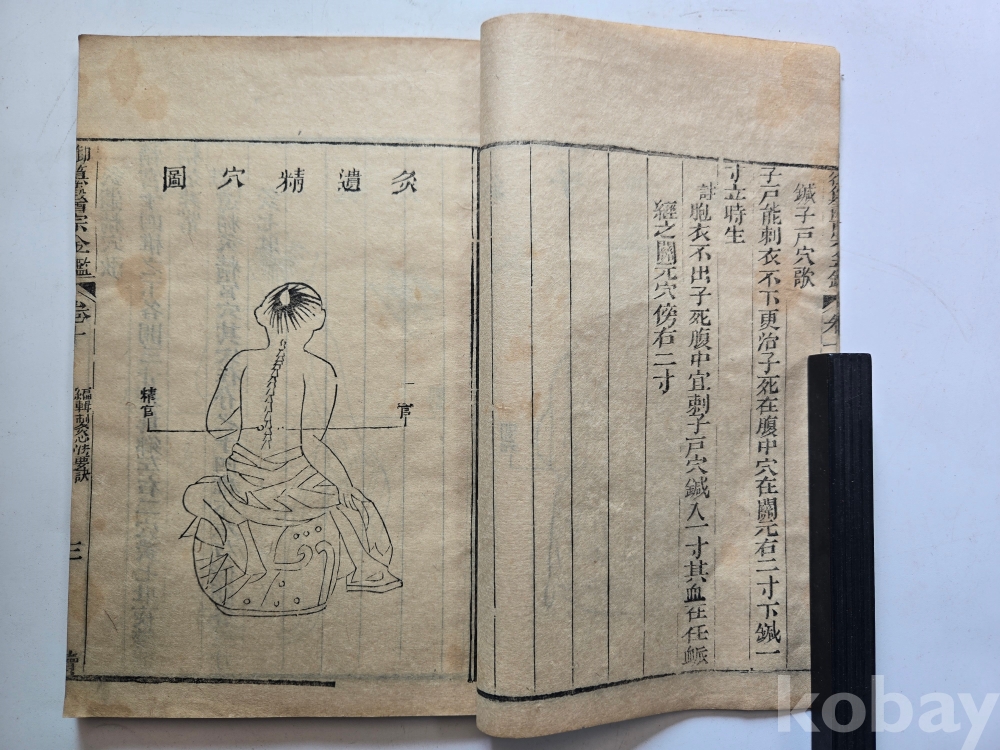 鍼子戸穴歌
子戸能刺衣不下更治子死在腹中穴在關元右二寸下鍼一
寸立時生
註胞衣不出子死腹中宜刺子戸穴鍼入一寸其血在任脈
經之關元穴傍右二寸
灸遺精穴圖
精宮
宮
御纂醫宗金鑑
卷十
編輯刺灸心法要訣
三
kobay